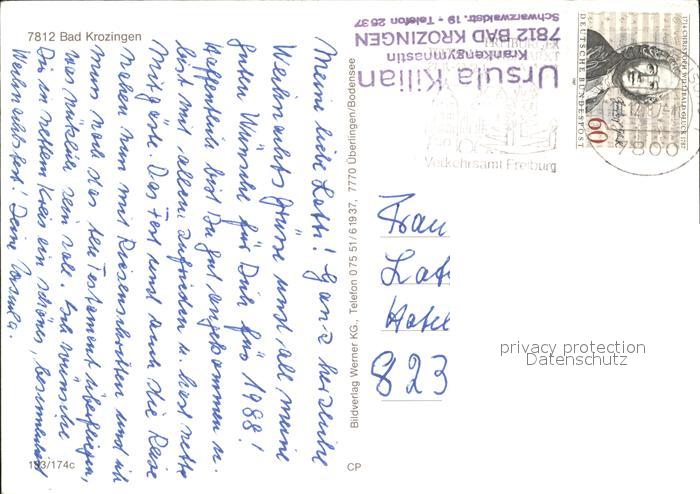 7812 Bad Krozingen
Meine liebe Lotti! Ganz herzliche
Weihnachtsgrüsse und all meine
guten Wünsche für Dich für 1988!
Hoffentlich bist Du gut angekommen u.
bist mit allem zufrieden u. hast nette
Mitgäste. Das Fest und auch die Reise
nahen nun mit Riesenschritten und ich
muss noch das Testament überfliegen,
was nützlich sein soll. Ich wünsche
Dir in nettem Kreis ein schönes, besinnliches
Weihnachtsfest! Deine Ursula.
193/174c
CP
Bildverlag Werner KG., Telefon 0 75 51 / 6 19 37, 7770 Überlingen/Bodensee
Ursula Kilian
Krankengymnastin
7812 BAD KROZINGEN
Schwarzwaldstr. 19 - Telefon 25 37
Verkehrsamt Freiburg
7800
DEUTSCHE BUNDESPOST
60
Frau
Hotel
823
privacy protection
Datenschutz